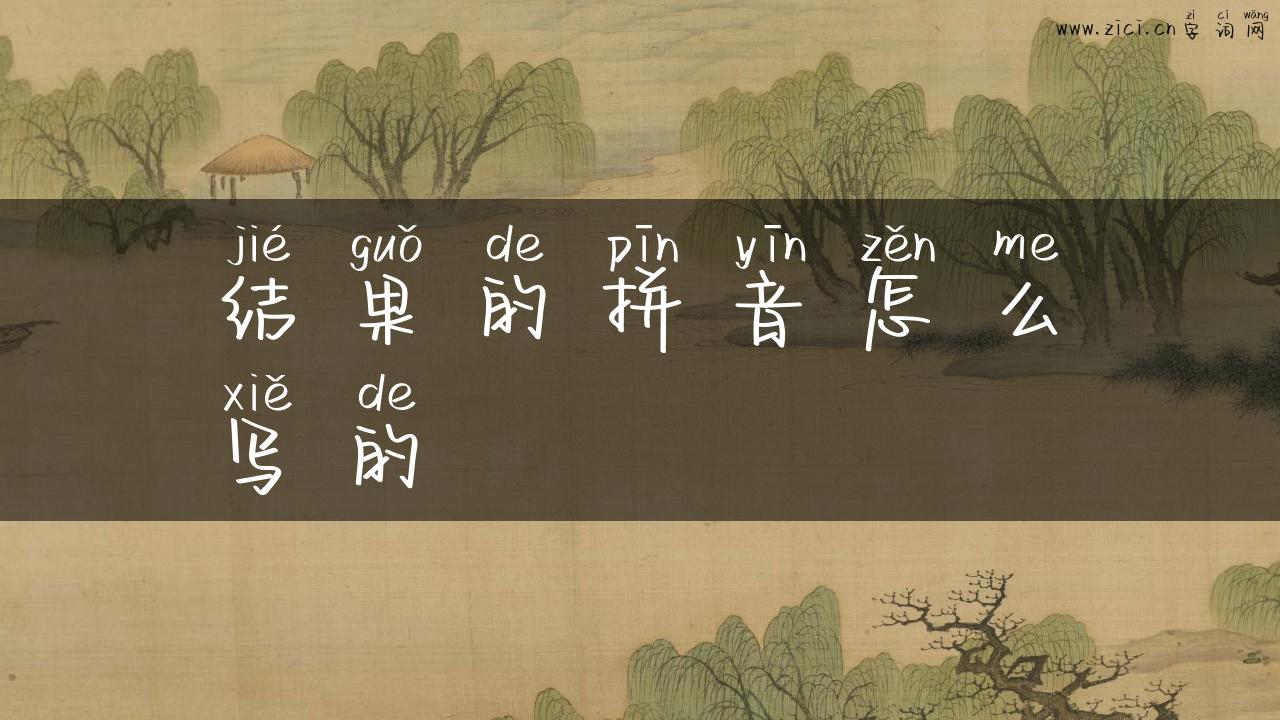 zì cí wǎng
www.zici.cn字词网
jié guǒ de pīn yīn zěn me
结果的拼音怎么
xiě de
写的